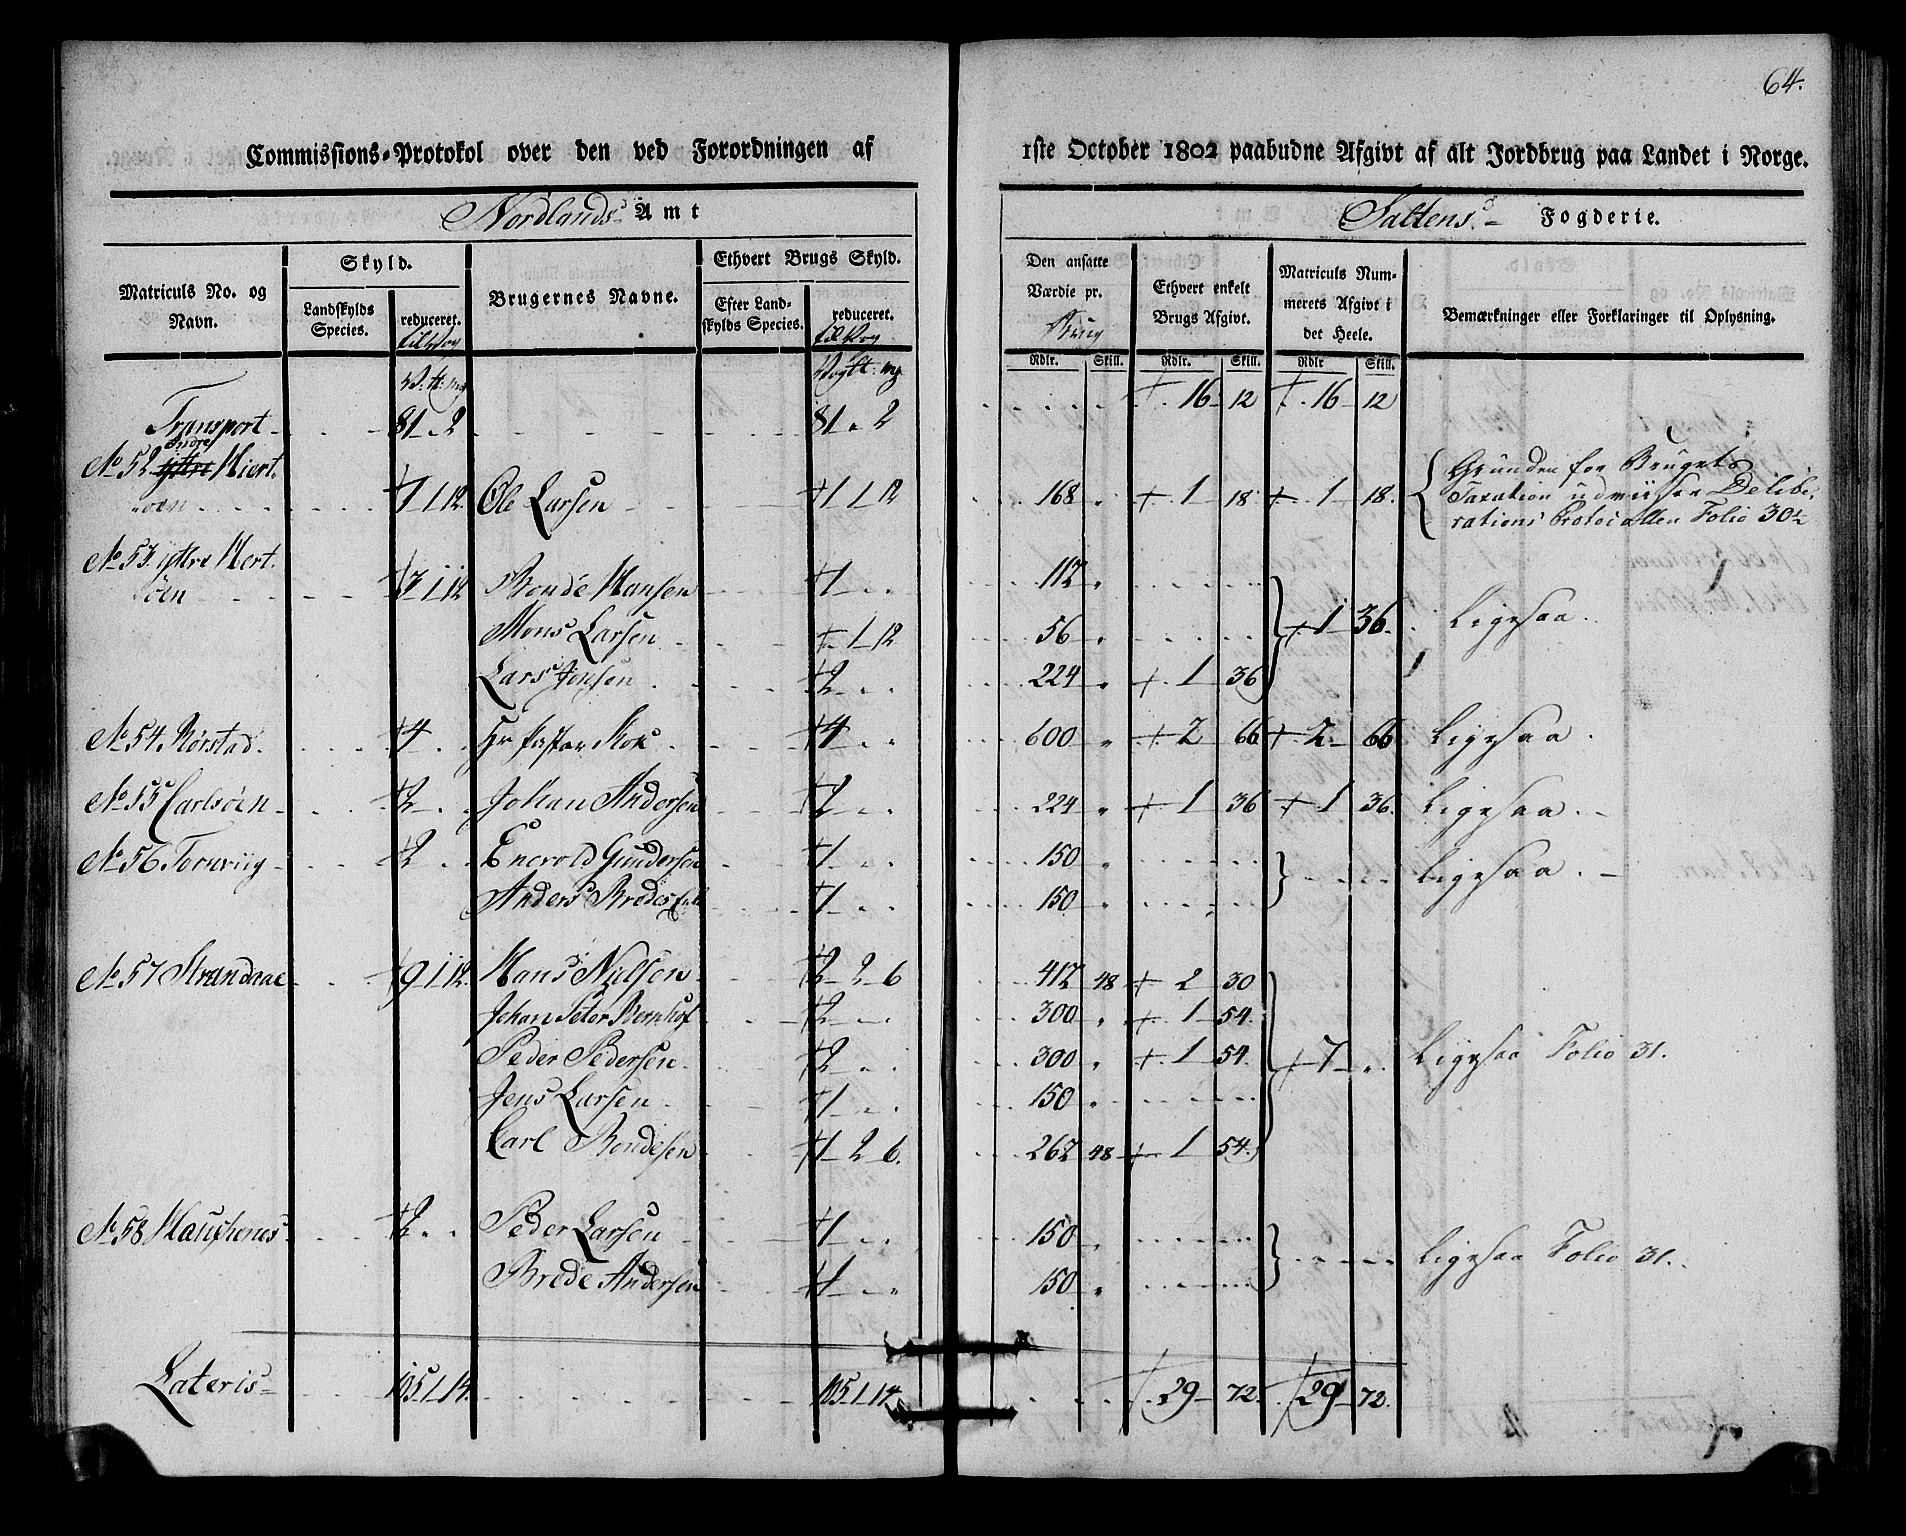 64.
Commissions-Protokol over den ved Forordningen af 1ste October 1802 paabudne Afgivt af alt Jordbrug paa Landet i Norge.
Nordlands Amt
Saltens Fogderie.
Matriculs No. og Navn.
Skyld.
Landskylds Species.
reduceret.
Brugernes Navne.
Ethvert Brugs Skyld.
Efter Landskylds Species.
reduceret.
Den ansatte Værdie pr. Brug
Ethvert enkelt Brugs Afgivt.
Matriculs Nummerets Afgivt i det Heele.
Bemærkninger eller Forklaringer til Oplysning.
Rdlr. Skill. Rdlr. Skill. Rdlr Skill.
Transport 81 - 2 81 - 2 16 12 16 12
No 52 Indre Hiertøen 1 1 12 Ole Larsen 1 1 12 168 " 1 18 1 18. Grunden for Brugets Taxation udviiser Deliberations Protocollen Folio 30½
No 53 ÿttre Hertøen 3 1 12 Bonde Hansen 1 - . 112 "
Mons Larsen - 1 12 56 " 1 36. Ligesaa.
Lars Jonsen 2 - . 224 " 1 36
No 54 Rørstad. 4 . . Hr Pastor Kok 4 - . 600 " 2 66 2 66 Ligesaa.
No 55 Carlsøen 2 . . Johan Andersen 2 - . 224 " 1 36 1 36. Ligesaa.
No 56 Tornviig 2 . . Engvold Gundersen 1 - . 150 " Ligesaa.
Anders 1 - . 150 "
No 57 Strandaae 9 1 12. Hans Nielsen 2 2 6 412 48 2 30
Johan Peter Bernhof 2 - . 300 " 1 54.
Peder Pedersen 2 - . 300 " 1 54. 7 - ". Ligesaa Folio 31.
Jens Larsen 1 - . 150 "
Carl Bondesen 1 2 6. 262 48 1 54.
No 58 2 . . Peder Larsen 1 - . 150 " Ligesaa Folio 31.
Brede Andersen 1 - " 150 "
Lateris 105 1 14. 105 1 14 29 72 29 72.